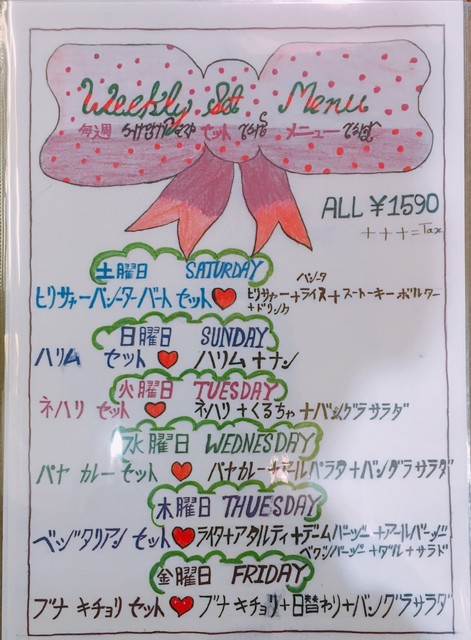 Weekly Set Menu
毎週 セット メニュー
ALL ¥1590
+++=Tax
土曜日 SATURDAY
ヒリサァーバンーターバート セット
バンータ
ヒリサァー+ライス+スートーキー ボルター
+ドリンク
日曜日 SUNDAY
ハリム セット ハリム+ナン
火曜日 TUESDAY
ネハリ セット ネハリ+くるちゃ+バングラサラダ
水曜日 WEDNESDAY
パナ カレーセット パナカレー+アールパラタ+バングラサラダ
木曜日 THUESDAY
ベジタリアン セット ライタ+アタルティ+デームバージー+アールバージー
ベグンバージー+ダル+サラド
金曜日 FRIDAY
ブナ キチョリ セット ブナ キチョリ+日替わり+バングラサラダ